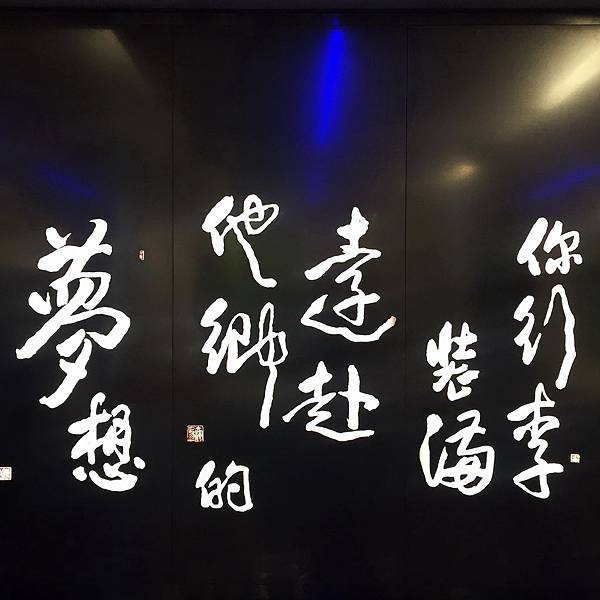 你行李
裝滿
遠赴
他鄉
的
夢想